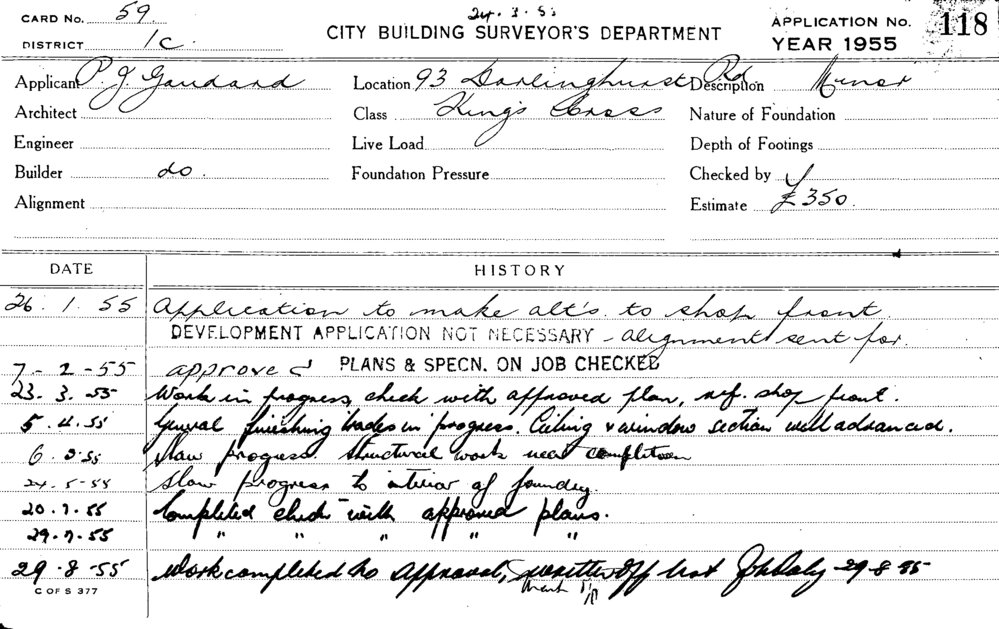 24.3.55
CARD No. 59
CITY BUILDING SURVEYOR'S DEPARTMENT
APPLICATION No. 118
DISTRICT 1c
YEAR 1955
Applicant P. J. Gaudard Location 93 Darlinghurst Rd Description Minor
Architect Class King's Cross Nature of Foundation
Engineer Live Load Depth of Footings
Builder do. Foundation Pressure Checked by
Alignment Estimate £350.
DATE HISTORY
26.1.55 Application to make alt's. to shop front.
DEVELOPMENT APPLICATION NOT NECESSARY - alignment sent for.
7-2-55 approved PLANS & SPECN. ON JOB CHECKED
23.3.55 Work in progress, check with approved plan, ref. shop front.
5.4.55 General finishing trades in progress. Ceiling & window section well advanced.
Slow progress. Structural work near completion
24-5-55 Slow progress to interior of foundry.
20.7.55 Completed check with approved plans.
29.7.55 " " " " "
29-8-55 Work completed to approval, written off list 29-8-55
C OF S 377